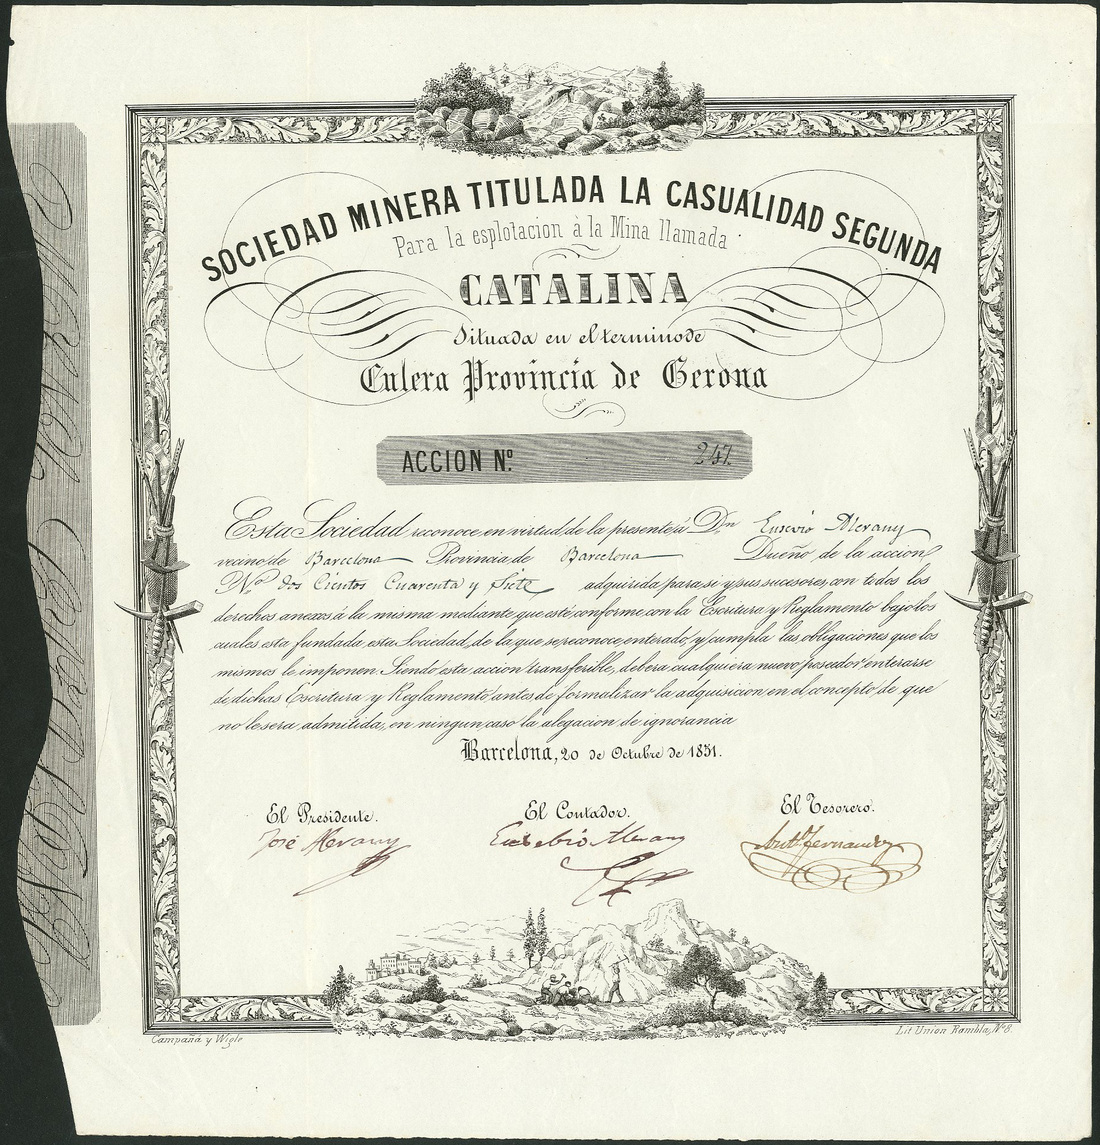 SOCIEDAD MINERA TITULADA LA CASUALIDAD SEGUNDA
Para la esplotacion à la Mina llamada
CATALINA
Situada en el termino de
Culera Provincia de Gerona
ACCION Nº 247.
Esta Sociedad reconoce en virtud de la presente á Dn Eusevio Merany
vecino de Barcelona Provincia de Barcelona Dueño de la accion
Nº dos Cientos Cuarenta y Siete adquirida para si y sus sucesores, con todos los
derechos anexos á la misma mediante que esté conforme con la Escritura y Reglamento bajo los
cuales esta fundada esta Sociedad, de la que se reconoce enterado y cumpla las obligaciones que los
mismos le imponen. Siendo esta accion transferible, debera cualquiera nuevo poseedor enterarse
de dichas Escritura y Reglamento antes de formalizar la adquisicion en el concepto de que
no le sera admitida, en ningun caso la alegacion de ignorancia
Barcelona, 20 de Octubre de 1851.
El Presidente. El Contador. El Tesorero.
José Merany Eusebio Merany Antº Fernandez
Campañá y Wigle Lit Union Rambla, Nº 8.